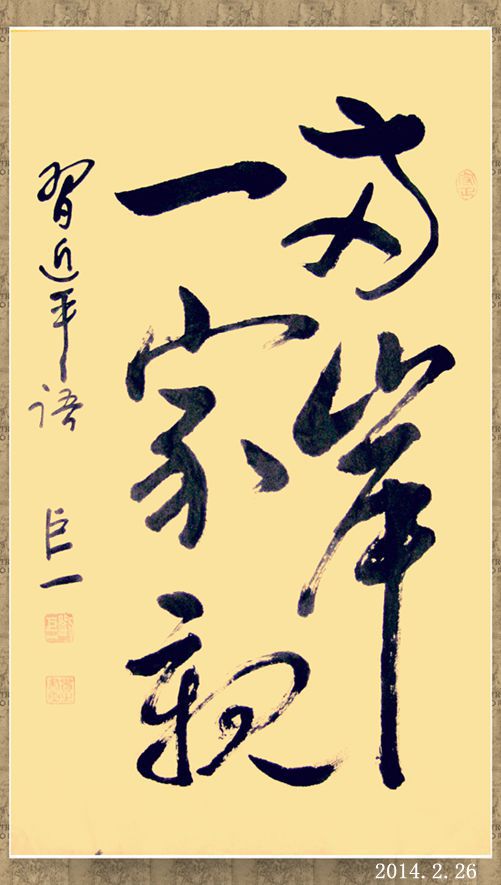 两岸
一家親
習近平语
巨一
2014.2.26